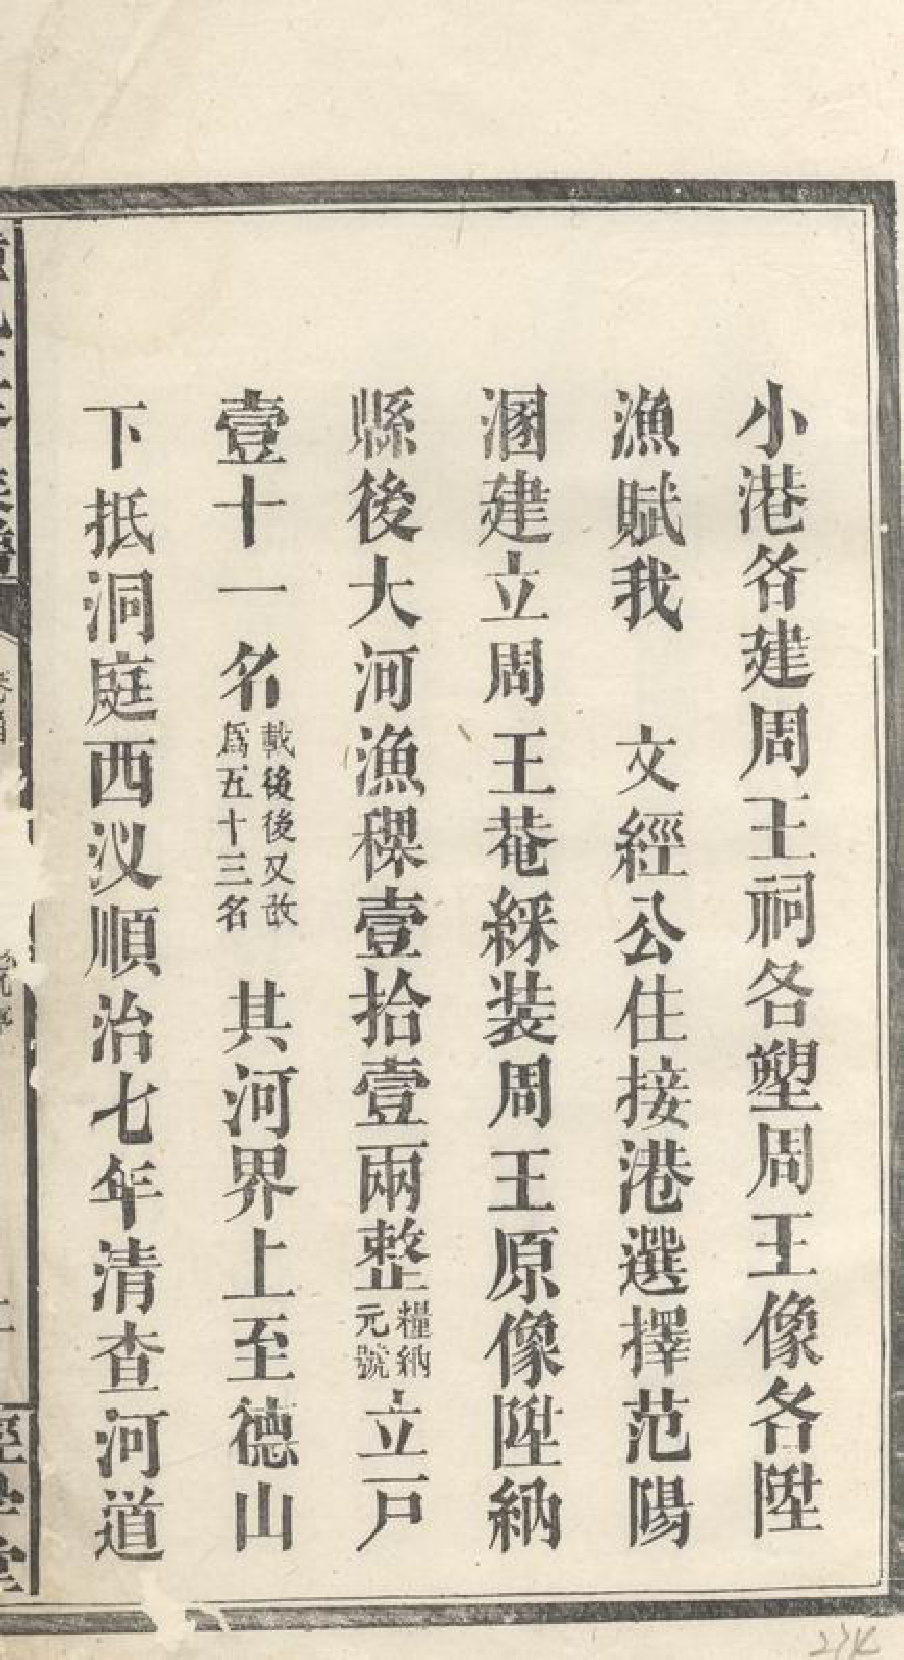 小港各建周王祠各塑周王像各陞
漁賦我　文經公住接港選擇范陽
溷建立周王菴綵装周王原像陞納
縣後大河漁稞壹拾壹兩整糧納元號立戶
壹十一名載後後又故爲五十三名　其河界上至德山
下抵洞庭西汊順治七年清查河道